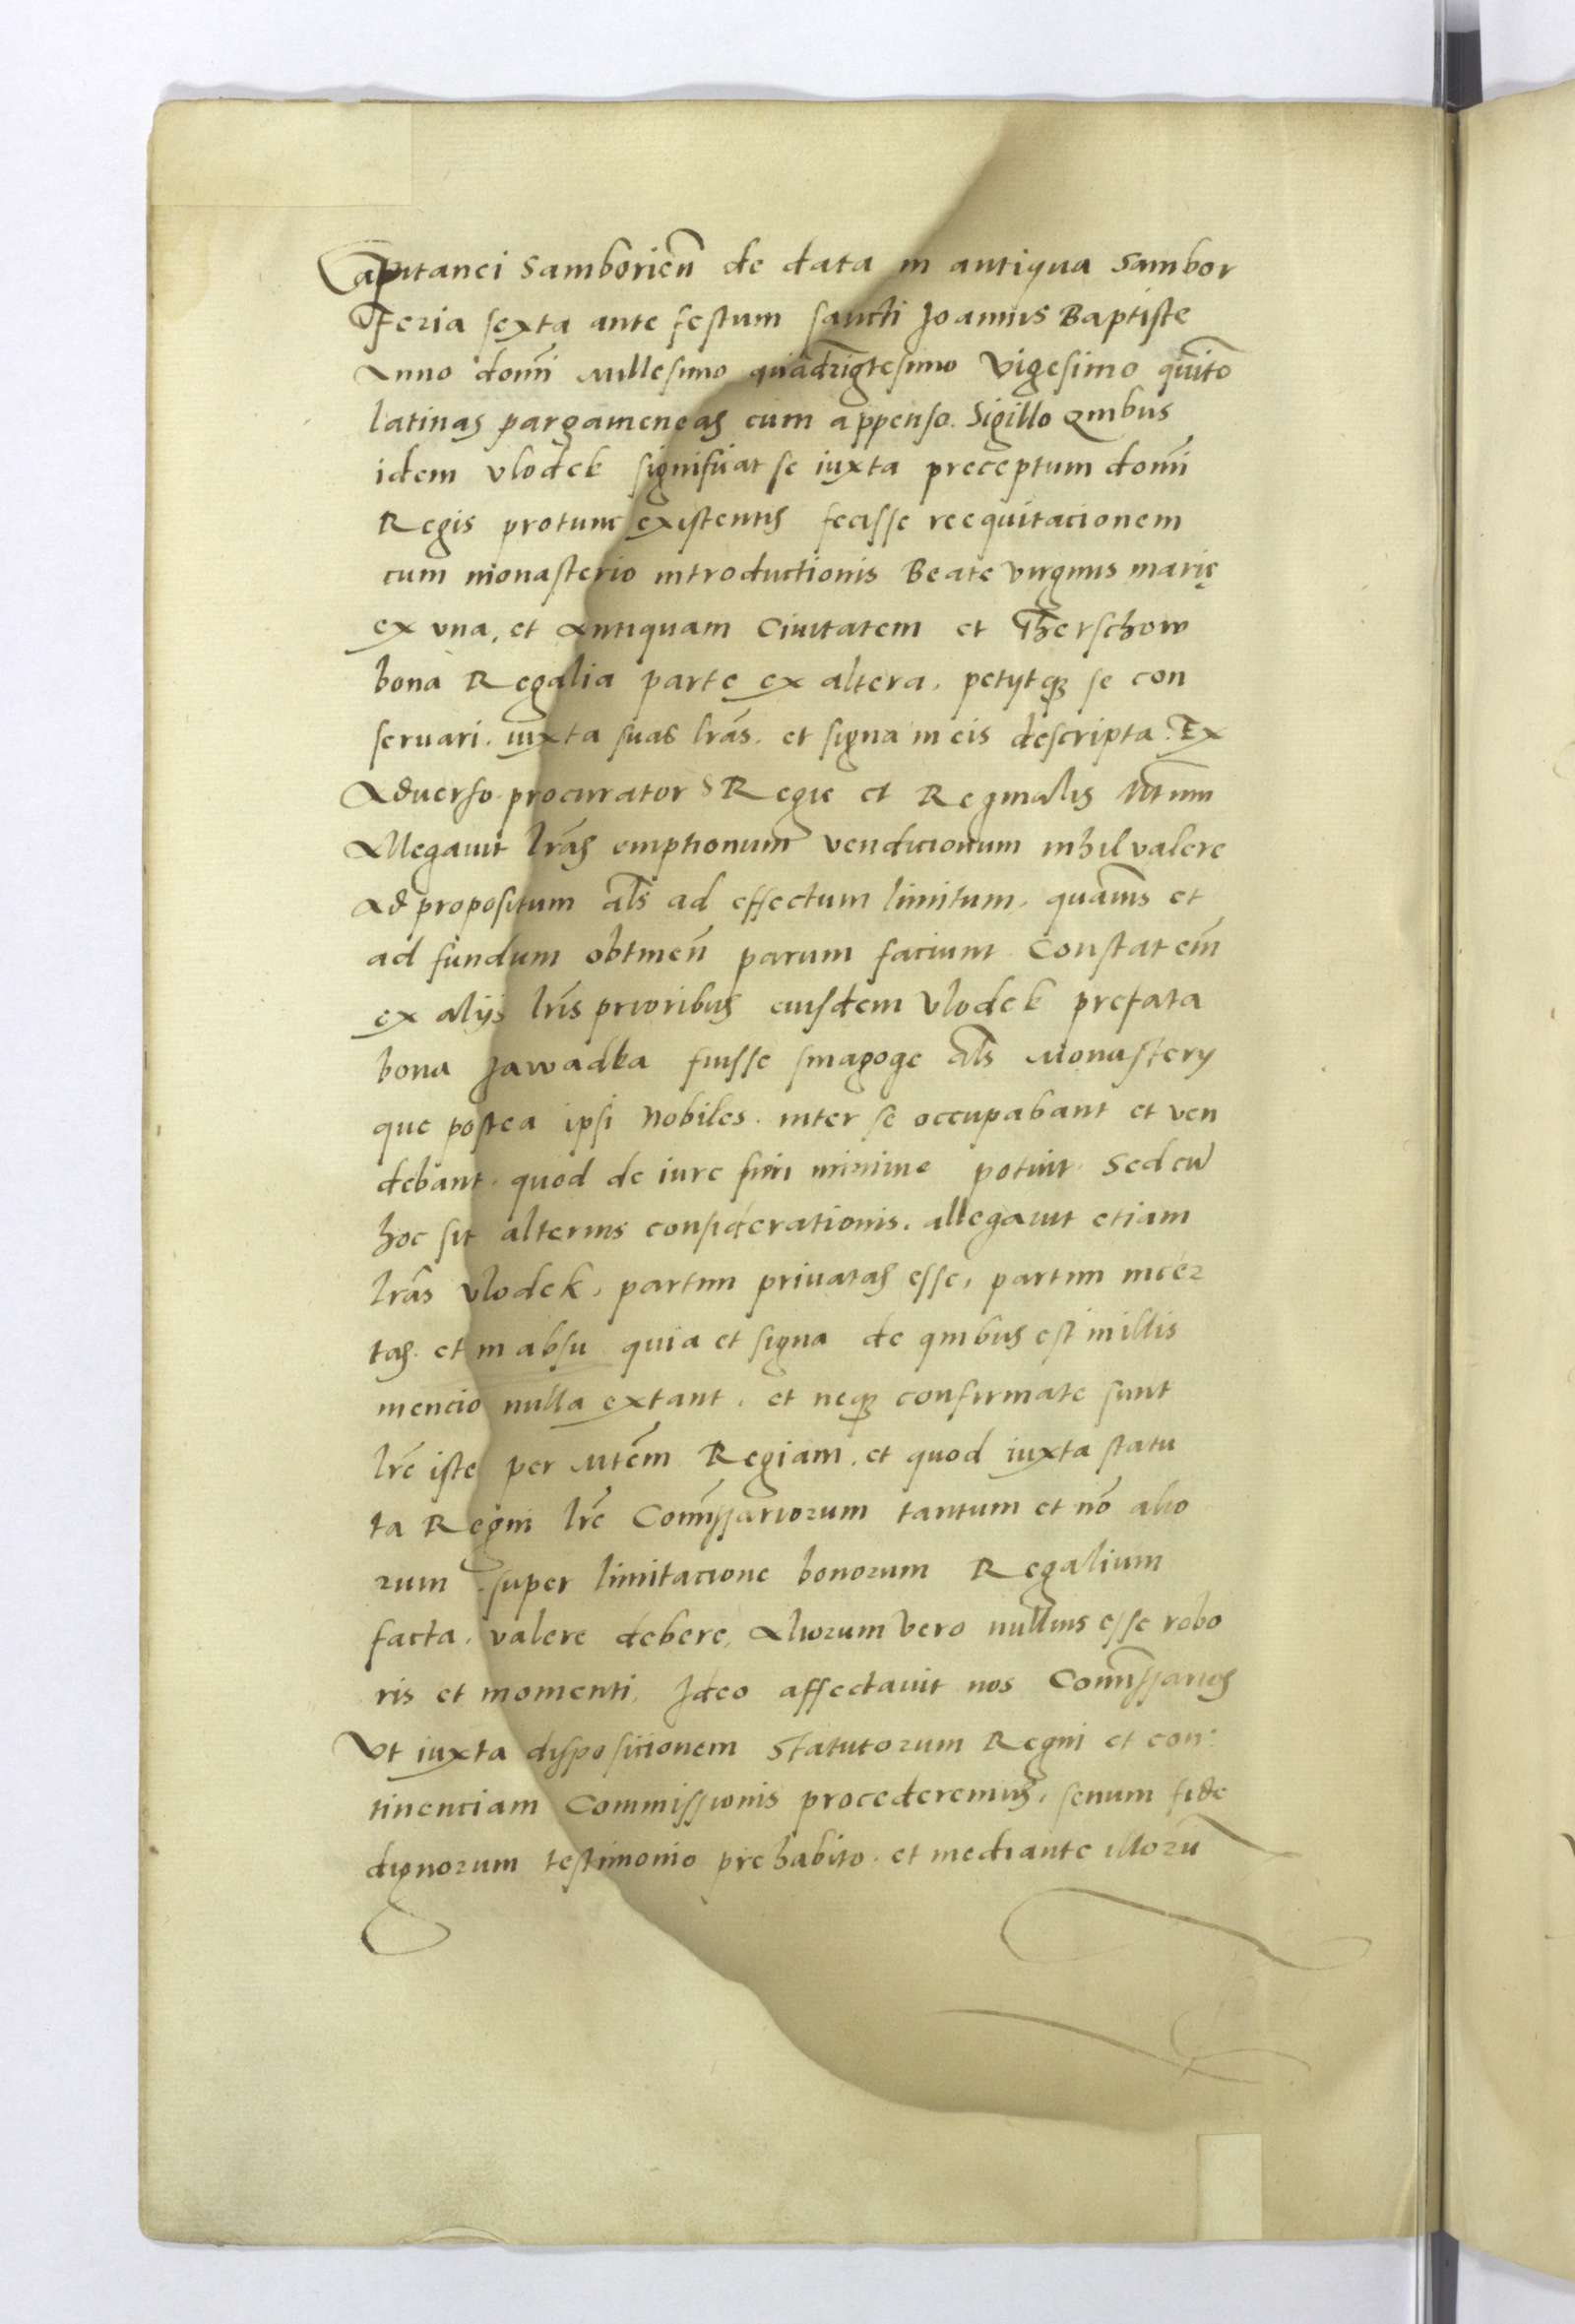 Capitanei Samborień de data in antiqua Sambor
Feria sexta ante festum sancti Joannis Baptiste
Anno dom̃i Millesimo quadrigẽtesimo Vigesimo quĩto
latinas pargameneas cum appenso. Sigillo Quibus
idem Vlodek significat se iuxta preceptum dom̃i
Regis protunc existentis fecisse reequitacionem
cum monasterio introductionis Beate virginis marię
ex vna, et Antiquam Ciuitatem et Therschow
bona Regalia parte ex altera, petijtqȝ se con
seruari. iuxta suas l̃ras. et signa in eis descripta. Ex
Aduerso procurator S Regie et Reginalis Mt̃um
Allegauit l̃ras emptionum vendicionum nihil valere
Ad propositum al̃s ad effectum limitum, quãuis et
ad fundum obtineñ parum faciunt. Constat eñi
ex alijs l̃ris prioribus eiusdem Vlodek prefata
bona Jawadka fuisse sinagoge al̃s Monastery
que postea ipsi Nobiles. inter se occupabant et ven
debant. quod de iure fieri minime potuit. Sed cũ
hoc sit alterius considerationis, allegauit etiam
l̃ras Vlodek, partim priuatas esse, partim incer
tas. et in absu quia et signa de quibus est in illis
mencio nulla extant, et neqȝ confirmate sunt
l̃re iste per Mt̃em Regiam, et quod iuxta statu
ta Regni l̃re Com̃issariorum tantum et nõ alio
rum super limitacione bonorum Regalium
facta, valere debere, Aliorum vero nullius esse robo
ris et momenti, Ideo affectauit nos Com̃issarios
Vt iuxta disposicionem Statutorum Regni et con:
tinenciam Commissionis procederemus, senum fide
dignorum testimonio prehabito. et mediante illorũ